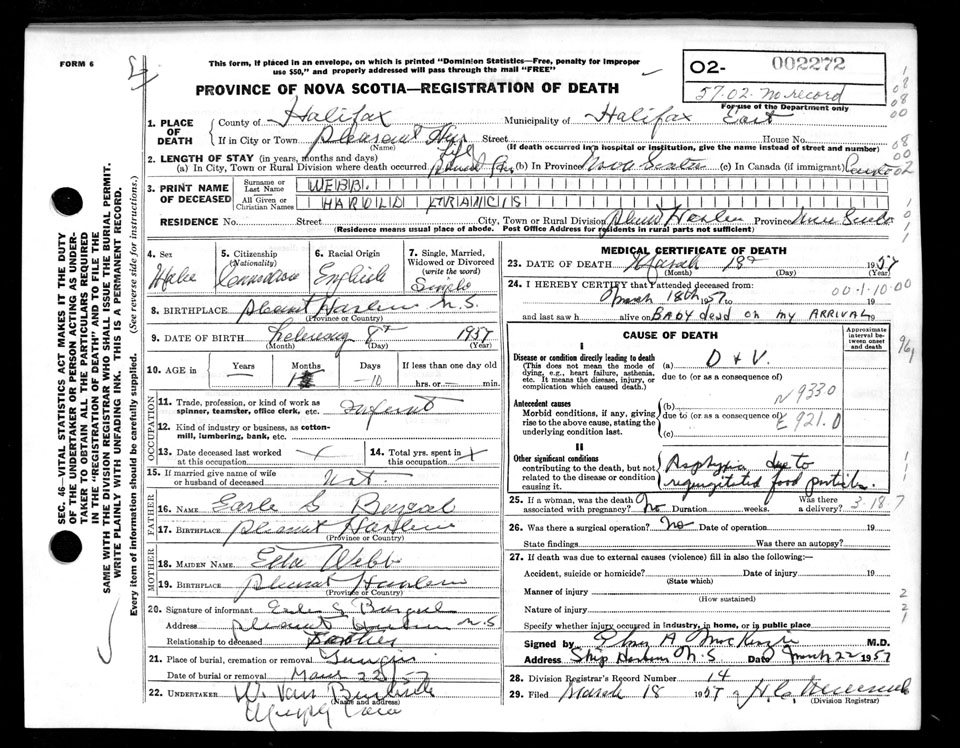 FORM 6
This form, if placed in an envelope, on which is printed "Dominion Statistics—Free, penalty for improper
use $50," and properly addressed will pass through the mail "FREE"
O2- 002272
57-02- No record
For use of the Department only
PROVINCE OF NOVA SCOTIA—REGISTRATION OF DEATH
1. PLACE OF DEATH
County of Halifax Municipality of Halifax East
If in City or Town Pleasant Hbr Street House No.
(Name) (If death occurred in a hospital or institution, give the name instead of street and number)
2. LENGTH OF STAY (in years, months and days) Life
(a) In City, Town or Rural Division where death occurred (b) In Province Nova Scotia (c) In Canada (if immigrant)
3. PRINT NAME OF DECEASED
Surname or Last Name WEBB
All Given or Christian Names HAROLD FRANCIS
RESIDENCE No. Street City, Town or Rural Division Pleasant Harbour Province Nova Scotia
(Residence means usual place of abode. Post Office Address for residents in rural parts not sufficient)
4. Sex Male
5. Citizenship (Nationality) Canadian
6. Racial Origin English
7. Single, Married, Widowed or Divorced (write the word) Single
8. BIRTHPLACE Pleasant Harbour N.S.
(Province or Country)
9. DATE OF BIRTH February 8th 1957
(Month) (Day) (Year)
10. AGE in Years Months Days If less than one day old
1 10 hrs. or min.
OCCUPATION
11. Trade, profession, or kind of work as spinner, teamster, office clerk, etc. Infant
12. Kind of industry or business, as cotton-mill, lumbering, bank, etc.
13. Date deceased last worked at this occupation
14. Total yrs. spent in this occupation
15. If married give name of wife or husband of deceased Not
FATHER
16. NAME Earle S
17. BIRTHPLACE Pleasant Harbour
(Province or Country)
MOTHER
18. MAIDEN NAME Eda Webb
19. BIRTHPLACE Pleasant Harbour
(Province or Country)
20. Signature of informant Earle S
Address Pleasant Harbour N.S
Relationship to deceased Father
21. Place of burial, cremation or removal
Date of burial or removal 22 57
22. UNDERTAKER W. Van
(Name and address)
MEDICAL CERTIFICATE OF DEATH
23. DATE OF DEATH March 18th 1957
(Month) (Day) (Year)
24. I HEREBY CERTIFY that I attended deceased from:
March 18th 1957 to 19
and last saw h alive on BABY dead on my ARRIVAL 19
CAUSE OF DEATH
Approximate interval between onset and death
I
Disease or condition directly leading to death
(This does not mean the mode of dying, e.g., heart failure, asthenia, etc. It means the disease, injury, or complication which caused death.)
(a) D & V.
due to (or as a consequence of)
Antecedent causes
Morbid conditions, if any, giving rise to the above cause, stating the underlying condition last.
(b) N 933.0
due to (or as a consequence of) E 921.0
(c)
II
Other significant conditions
contributing to the death, but not related to the disease or condition causing it.
Asphyxia due to
regurgitated food particles.
25. If a woman, was the death associated with pregnancy? No Duration weeks. Was there a delivery? 3-18 7
26. Was there a surgical operation? No Date of operation 19
State findings Was there an autopsy?
27. If death was due to external causes (violence) fill in also the following:—
Accident, suicide or homicide? Date of injury 19
(State which)
Manner of injury
(How sustained)
Nature of injury
Specify whether injury occurred in industry, in home, or in public place
Signed by A MacKenzie M.D.
Address Ship Harbour N.S Date March 22 1957
28. Division Registrar's Record Number 14
29. Filed March 18 1957
(Division Registrar)
SEC. 46—VITAL STATISTICS ACT MAKES IT THE DUTY
OF THE UNDERTAKER OR PERSON ACTING AS UNDER-
TAKER TO OBTAIN ALL THE PARTICULARS REQUIRED
IN THE "REGISTRATION OF DEATH" AND TO FILE THE
SAME WITH THE DIVISION REGISTRAR WHO SHALL ISSUE THE BURIAL PERMIT.
WRITE PLAINLY WITH UNFADING INK. THIS IS A PERMANENT RECORD.
Every item of information should be carefully supplied. (See reverse side for instructions.)